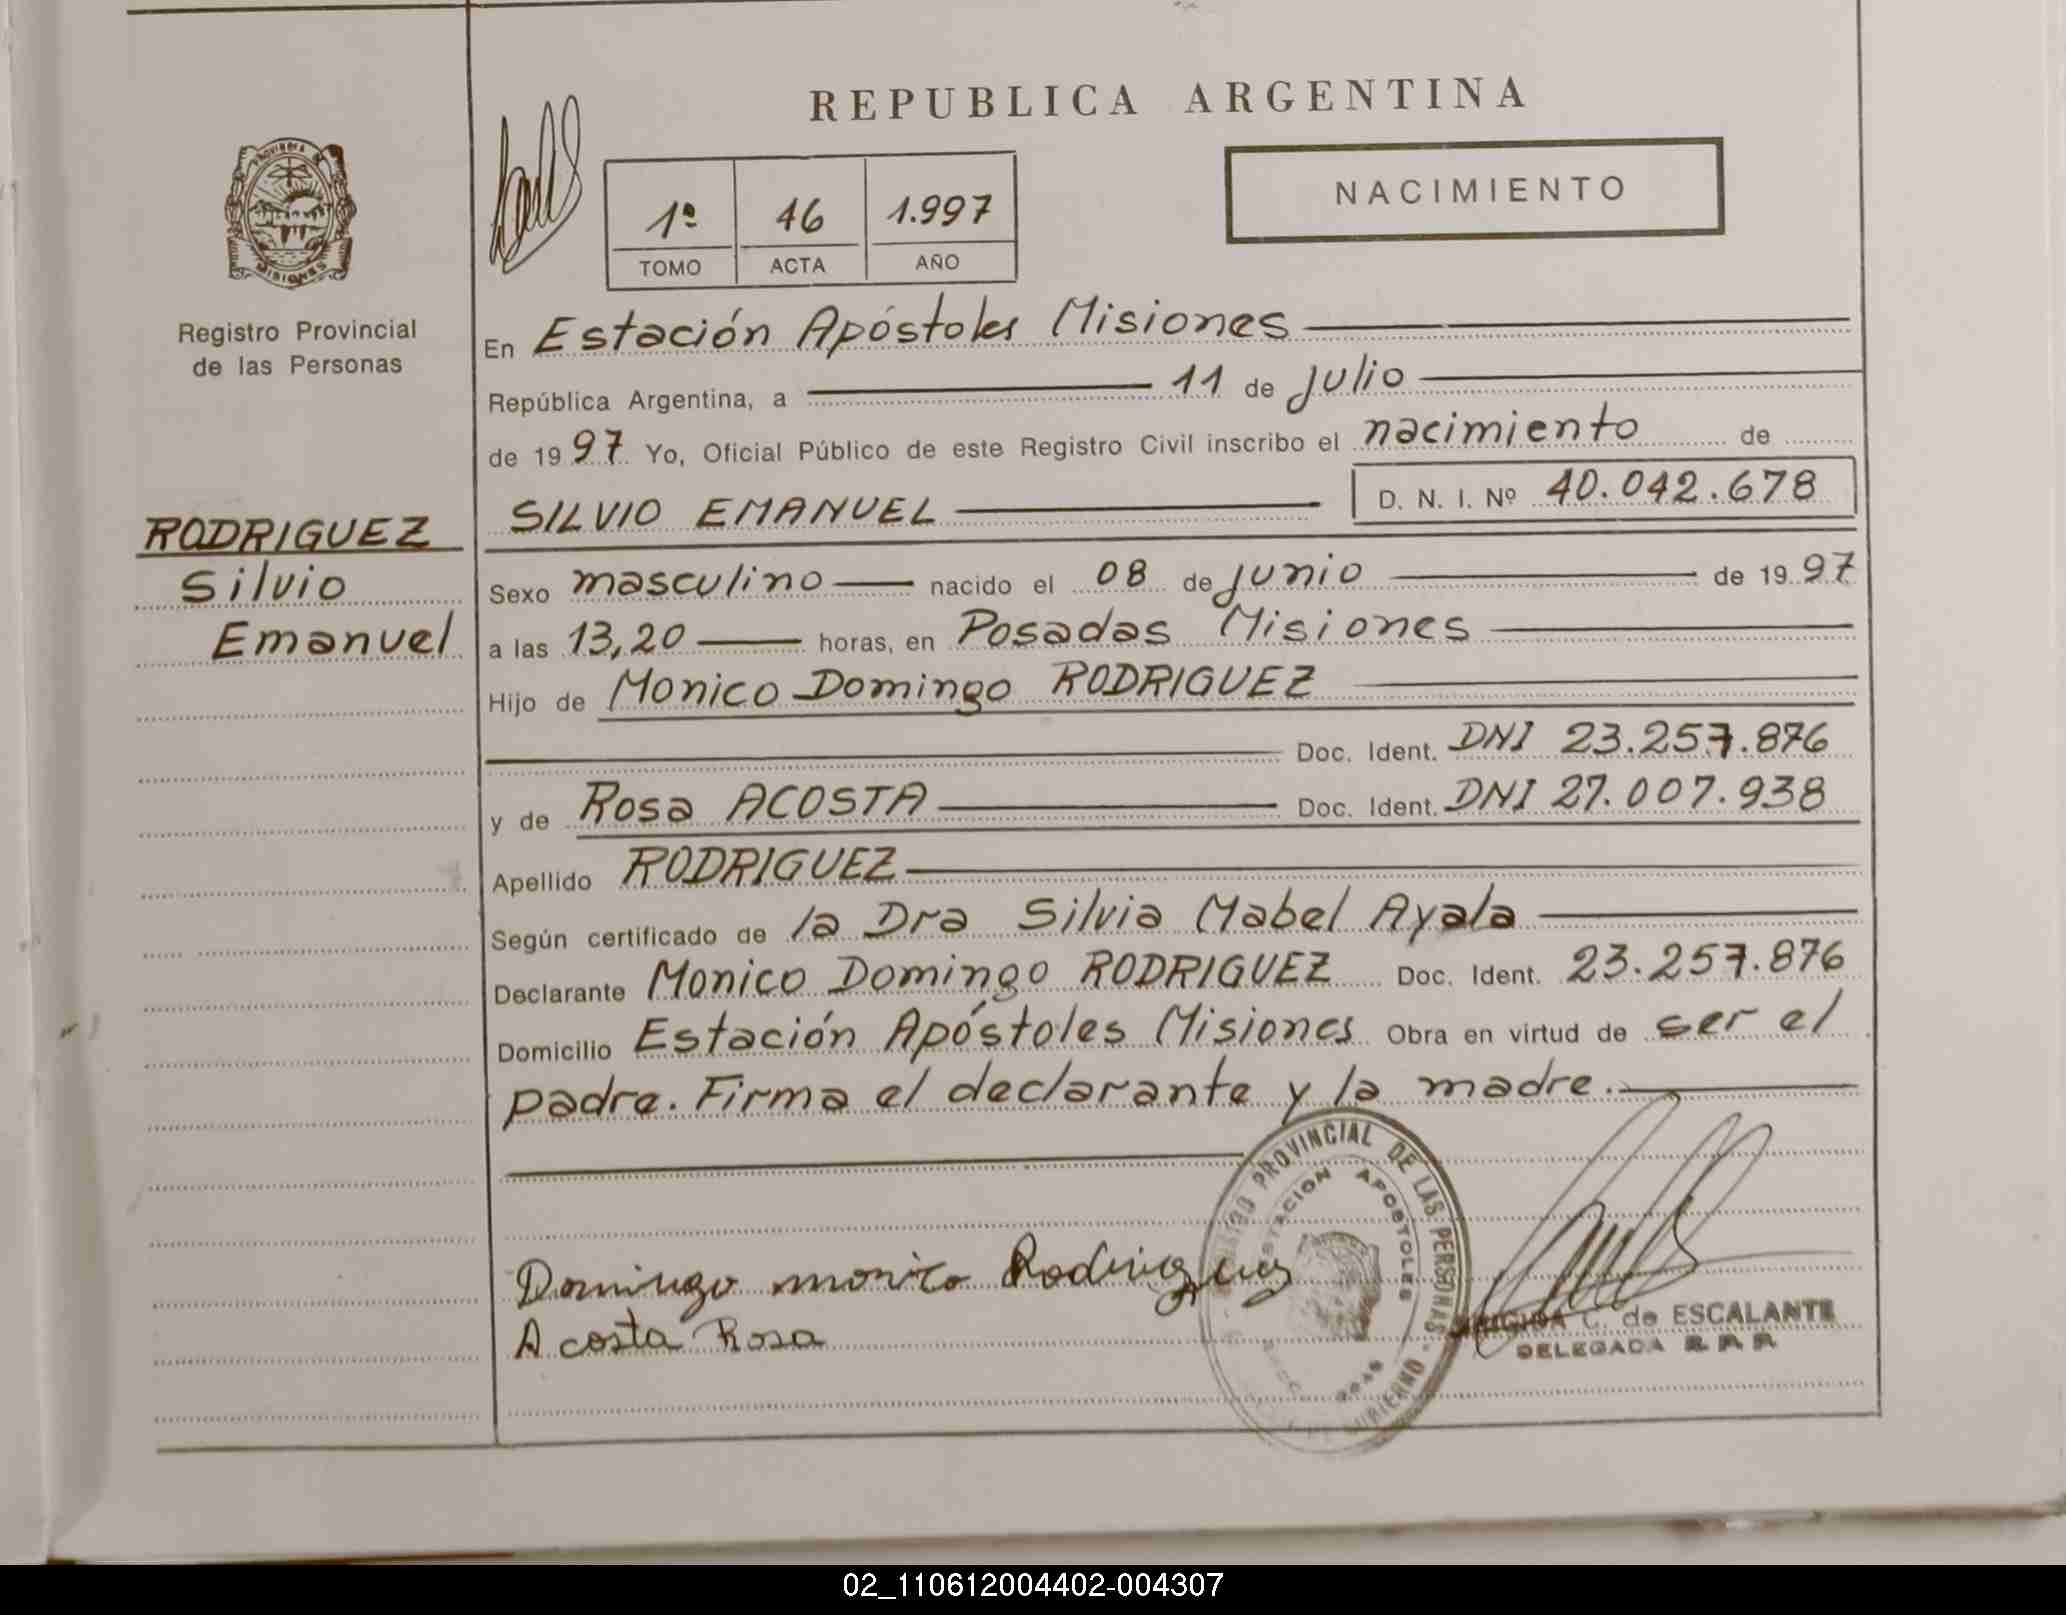 REPUBLICA ARGENTINA
NACIMIENTO
1º 46 1.997
TOMO ACTA AÑO
PROVINCIA DE MISIONES
Registro Provincial
de las Personas
RODRIGUEZ
Silvio
Emanuel
En Estación Apóstoles Misiones
República Argentina, a 11 de julio
de 1997 Yo, Oficial Público de este Registro Civil inscribo el nacimiento de
SILVIO EMANUEL D. N. I. Nº 40.042.678
Sexo masculino nacido el 08 de junio de 1997
a las 13,20 horas, en Posadas Misiones
Hijo de Monico Domingo RODRIGUEZ
Doc. Ident. DNI 23.257.876
y de Rosa ACOSTA Doc. Ident. DNI 27.007.938
Apellido RODRIGUEZ
Según certificado de la Dra Silvia Mabel Ayala
Declarante Monico Domingo RODRIGUEZ Doc. Ident. 23.257.876
Domicilio Estación Apóstoles Misiones Obra en virtud de ser el
padre. Firma el declarante y la madre.
PROVINCIAL DE LAS PERSONAS
ESTACION APOSTOLES
Domingo monico Rodriguez
Acosta Rosa
C. de ESCALANTE
DELEGADA R. P. P.
02_110612004402-004307